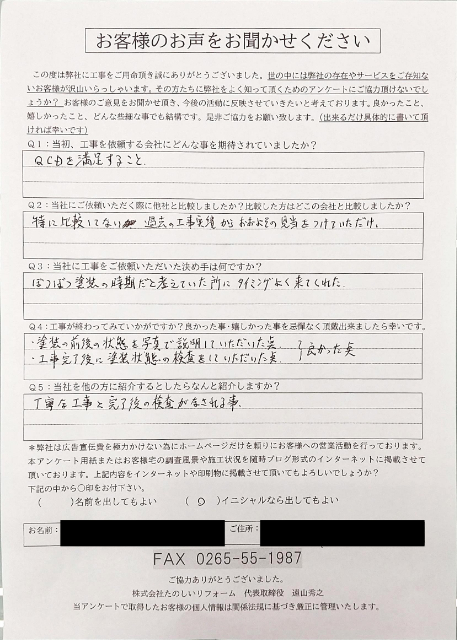 お客様のお声をお聞かせください
この度は弊社に工事をご用命頂き誠にありがとうございました。世の中には弊社の存在やサービスをご存知ない
お客様が沢山いらっしゃいます。その方たちに弊社をよく知って頂くためのアンケートにご協力頂けないで
しょうか？お客様のご意見をお聞かせ頂き、今後の活動に反映させていきたいと考えております。良かったこと、
嬉しかったこと、どんな些細な事でも結構です。是非ご協力をお願い致します。（出来るだけ具体的に書いて頂
ければ幸いです）
Q1：当初、工事を依頼する会社にどんな事を期待されていましたか？
QCDを満足すること。
Q2：当社にご依頼いただく際に他社と比較しましたか？比較した方はどこの会社と比較しましたか？
特に比較してない 過去の工事実績からおおよその見当をつけていただけ。
Q3：当社に工事をご依頼いただいた決め手は何ですか？
ぼつぼつ塗装の時期だと考えていた所にタイミングよく来てくれた
Q4：工事が終わってみていかがですか？良かった事・嬉しかった事を忌憚なく頂戴出来ましたら幸いです。
・塗装の前後の状態を写真で説明していただいた点
・工事完了後に塗装状態の検査をしていただいた点 良かった点
Q5：当社を他の方に紹介するとしたらなんと紹介しますか？
丁寧な工事と完了後の検査が合される事。
＊弊社は広告宣伝費を極力かけない為にホームページだけを頼りにお客様への営業活動を行っております。
本アンケート用紙またはお客様宅の調査風景や施工状況を随時ブログ形式のインターネットに掲載させて
頂いております。上記内容をインターネットや印刷物に掲載させて頂いてもよろしいでしょうか？
下記の中から○印をお付下さい。
（　　）名前を出してもよい　　（ ○ ）イニシャルなら出してもよい
お名前： ご住所：
FAX 0265-55-1987
ご協力ありがとうございました。
株式会社たのしいリフォーム 代表取締役 遠山秀之
当アンケートで取得したお客様の個人情報は関係法規に基づき厳正に管理いたします。